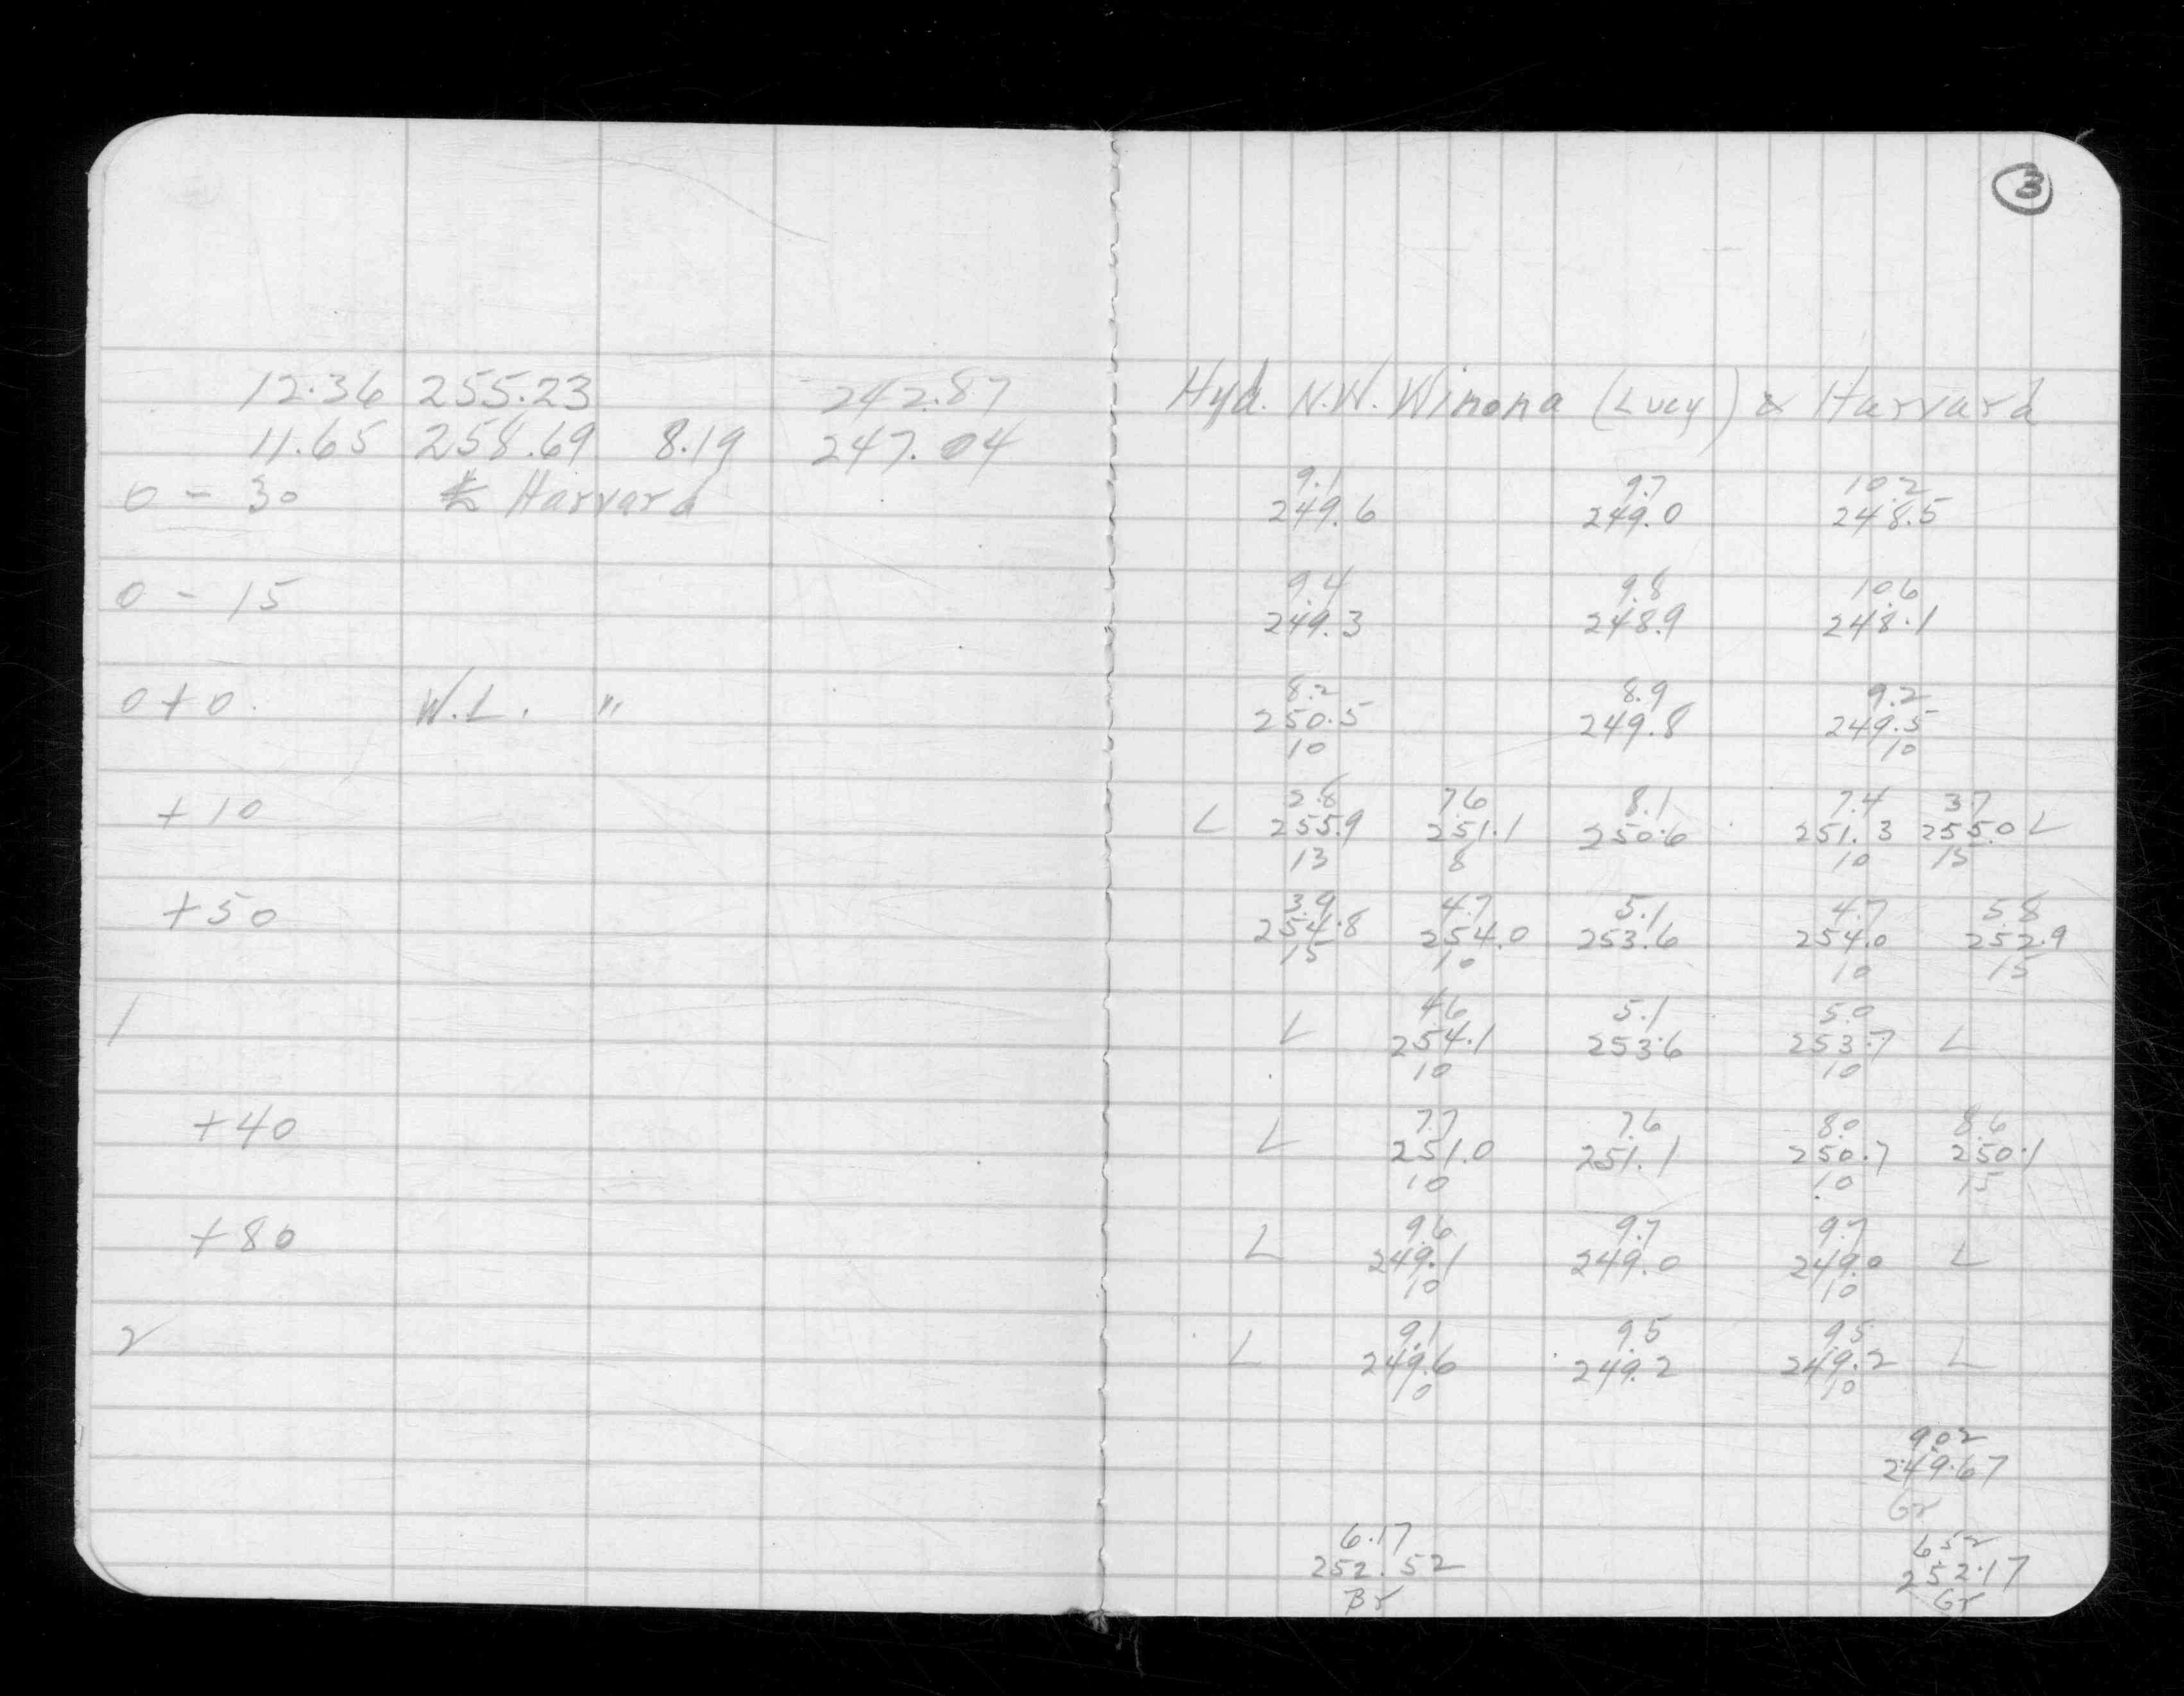 3
12.36 255.23 242.87
11.65 258.69 8.19 247.04
0 - 30 ℄ Harvard
0 - 15
0+0. W.L. "
+10
+50
1
+40
+80
2
Hyd. N.W. Winona (Lucy) & Harvard
9.1 9.7 10.2
249.6 249.0 248.5
9.4 9.8 10.6
249.3 248.9 248.1
8.2 8.9 9.2
250.5 249.8 249.5
10 10
2.8 7.6 8.1 7.4 3.7
L 255.9 251.1 250.6 251.3 255.0 L
13 8 10 15
3.9 4.7 5.1 4.7 5.8
254.8 254.0 253.6 254.0 252.9
15 10 10 15
4.6 5.1 5.0
L 254.1 253.6 253.7 L
10 10
7.7 7.6 8.0 8.6
L 251.0 251.1 250.7 250.1
10 10 15
9.6 9.7 9.7
L 249.1 249.0 249.0 L
10 10
9.1 9.5 9.5
L 249.6 249.2 249.2 L
10 10
9.02
249.67
Gr
6.17 6.52
252.52 252.17
Br Gr